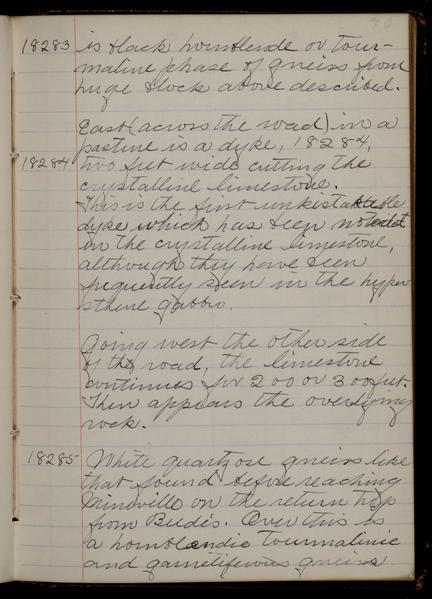 45
18283 is black hornblende or tour-
maline phase of gneiss from
huge block above described.
East (across the road) in a
pasture is a dyke, 18284,
18284 two feet wide cutting the
crystalline limestone.
This is the first unmistakable
dyke which has been noted
in the crystalline limestone,
although they have been
frequently seen in the hyper
sthene gabbro.
Going west the other side
of the road, the limestone
continues for 200 or 300 feet.
Then appears the overlying
rock.
18285 White quartzose gneiss like
that found before reaching
Mineville on the return trip
from Bude's. Over this is
a hornblendic tourmalinic
and garnetiferous gneiss